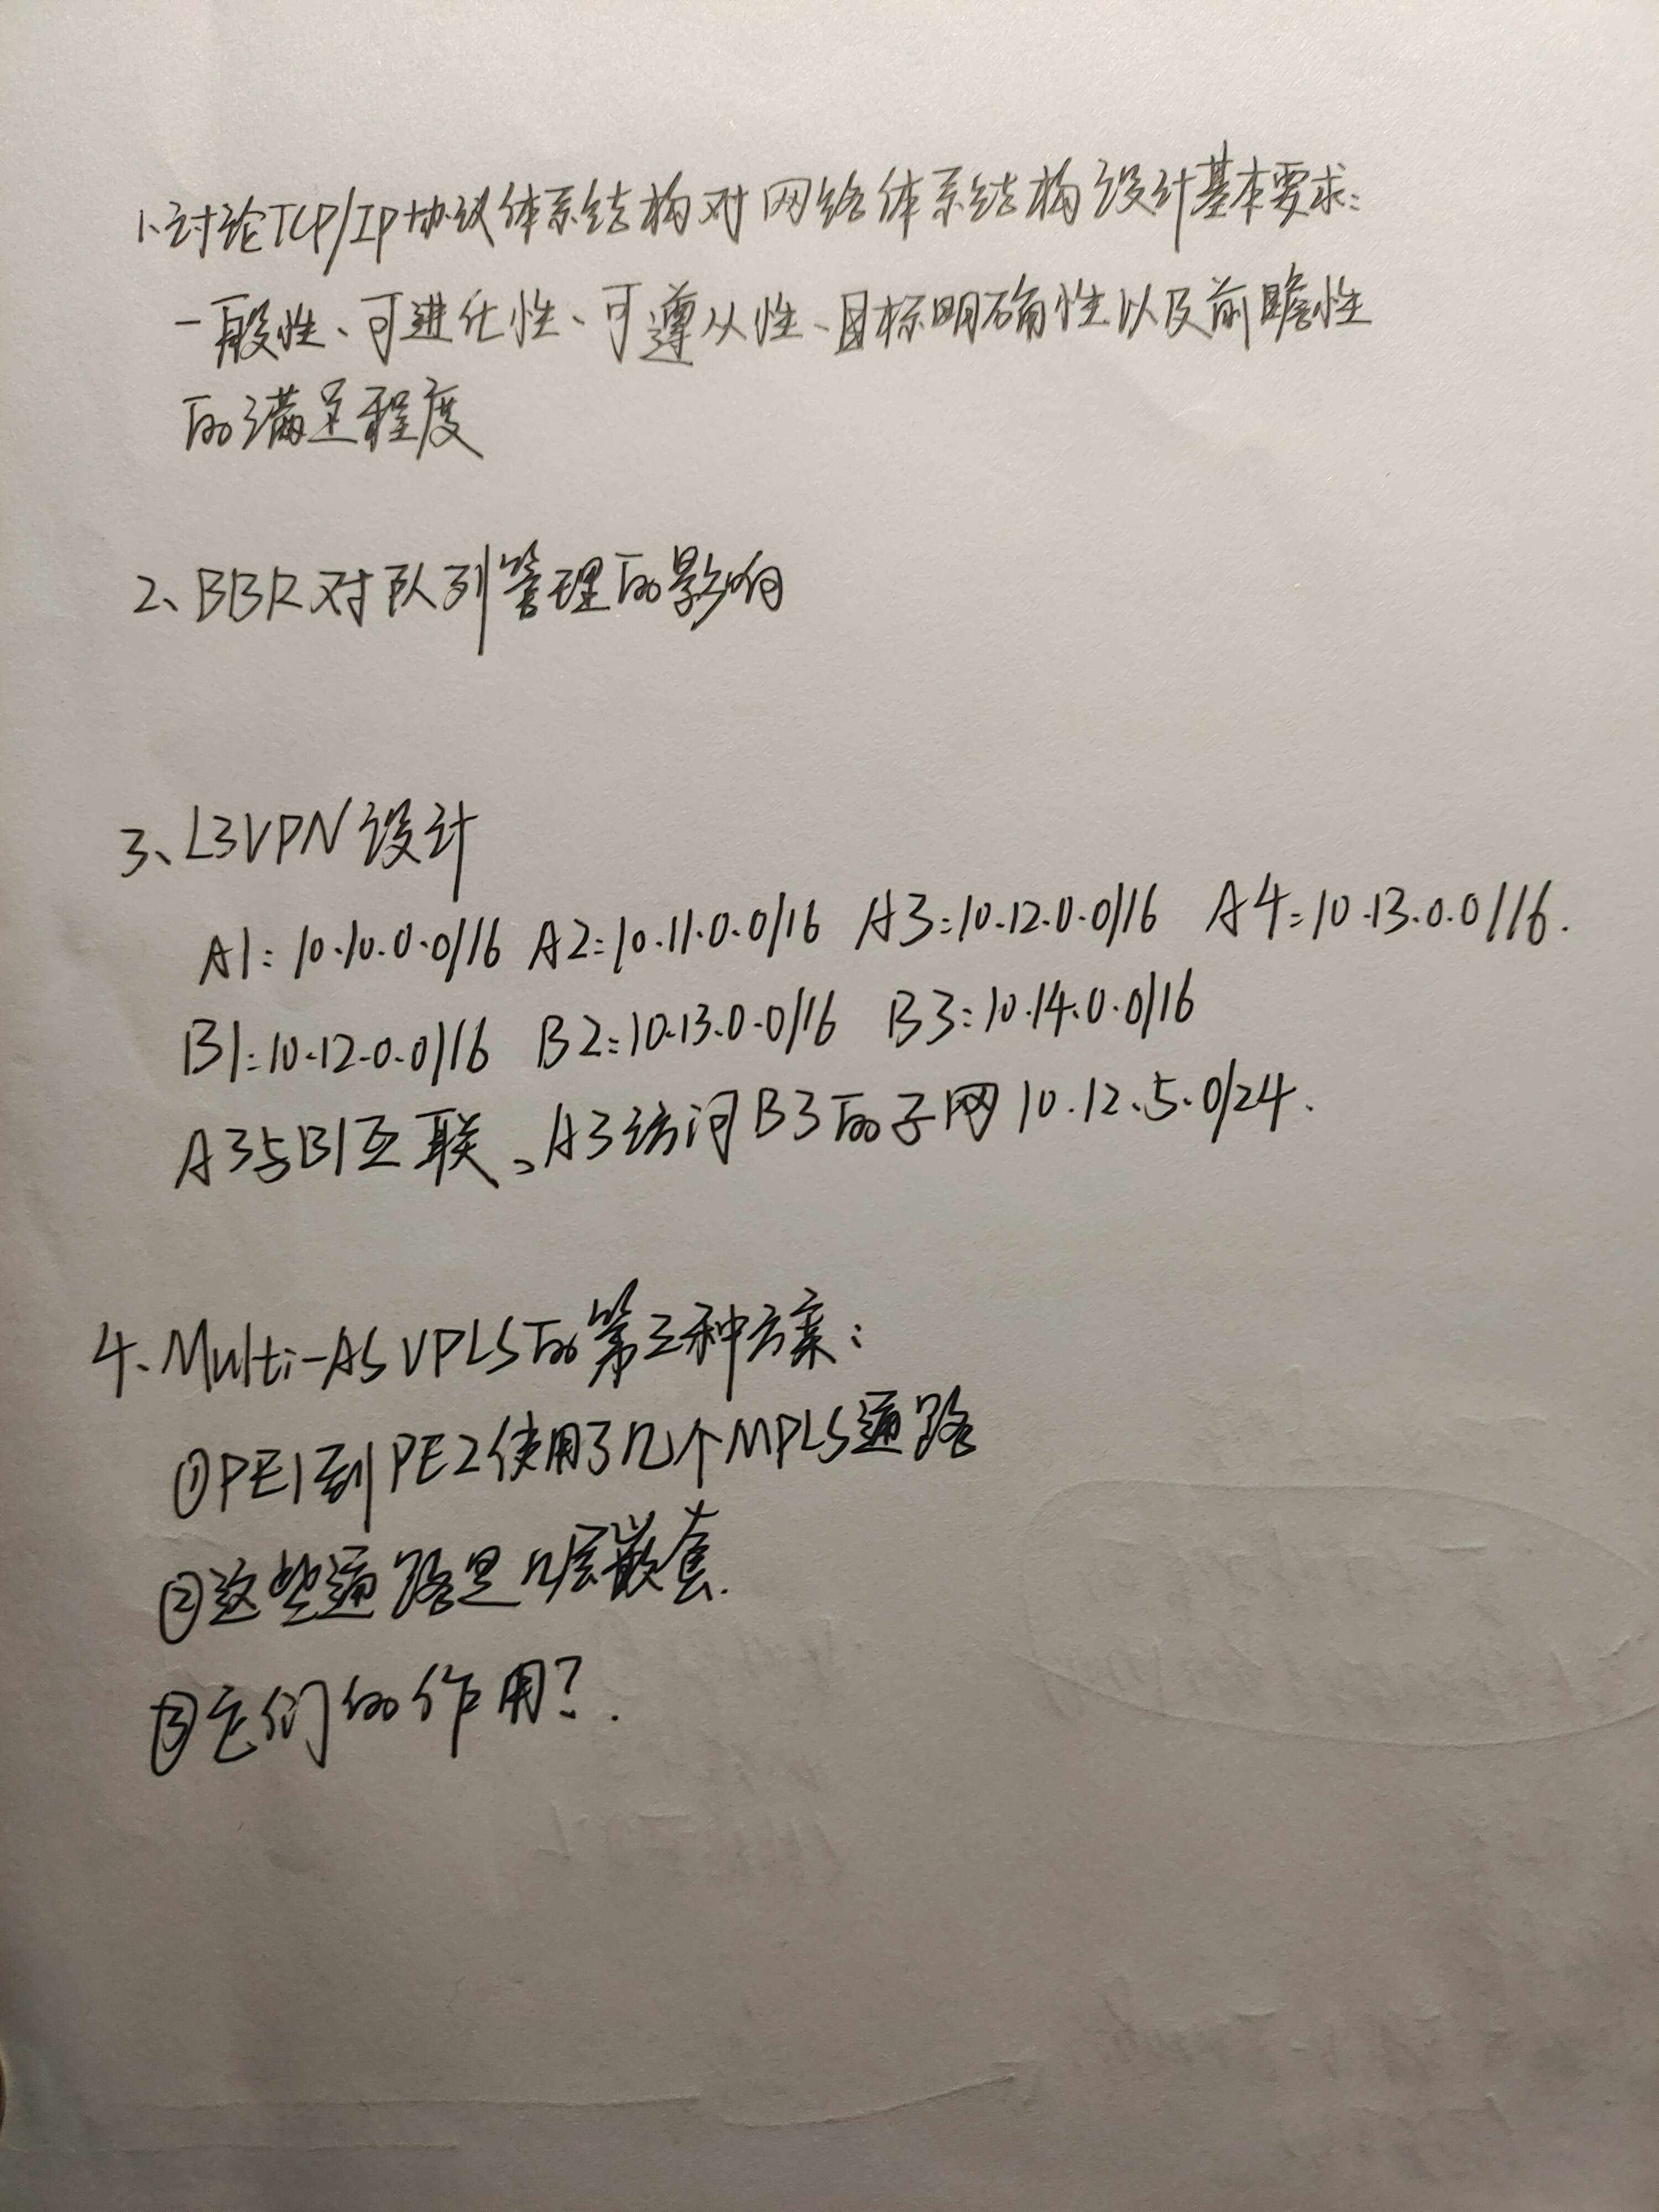 1、讨论TCP/IP协议体系结构对网络体系结构设计基本要求:
一般性、可进化性、可遵从性、目标明确性以及前瞻性
的满足程度
2、BBR对队列管理的影响
3、L3VPN设计
A1=10.10.0.0/16 A2=10.11.0.0/16 A3=10.12.0.0/16 A4=10.13.0.0/16.
B1=10.12.0.0/16 B2=10.13.0.0/16 B3=10.14.0.0/16
A3与B1互联、A3访问B3的子网10.12.5.0/24.
4、Multi-AS VPLS的第三种方案:
①PE1到PE2使用了几个MPLS通路
②这些通路是几层嵌套.
③它们的作用?.